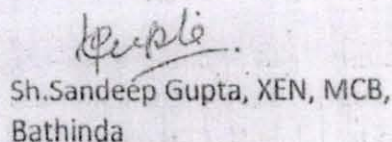 Gupta
Sh.Sandeep Gupta, XEN, MCB,
Bathinda